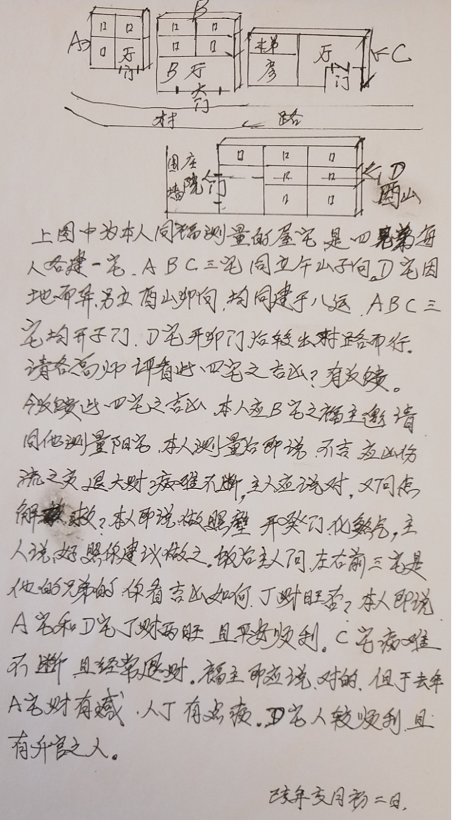 B
A
厅
门
B 厅
大
门
梯
房
厅
门
C
村 路
围
墙
座
院
门
D
酉山
上图中为本人同福测量的屋宅是四兄弟每
人各建一宅. A B C 三宅同立午山子向. D宅因
地而异另立酉山卯向. 均同建于八运. A B C 三
宅均开子门. D宅开卯门后转出村路而行.
请各高师评看此四宅之吉凶? 有反馈。
今反馈此四宅之吉凶. 本人应B宅之福主邀请
同他测量阳宅. 本人测量后即说 不吉 应凶伤
流之灾 退大财 病难不断, 主人应说对, 又问点
解救? 本人即说做照壁 开癸门化煞气. 主
人说好照你建议做之. 饭后主人问. 左右前三宅是
他的兄弟的你看吉凶如何. 丁财旺否? 本人即说
A宅和D宅丁财两旺 且平安顺利. C宅病难
不断且经常退财. 福主即应说. 对的. 但于去年
A宅财有减. 人丁有点损. D宅人较顺利 且
有升官之人。
年 月初二日.